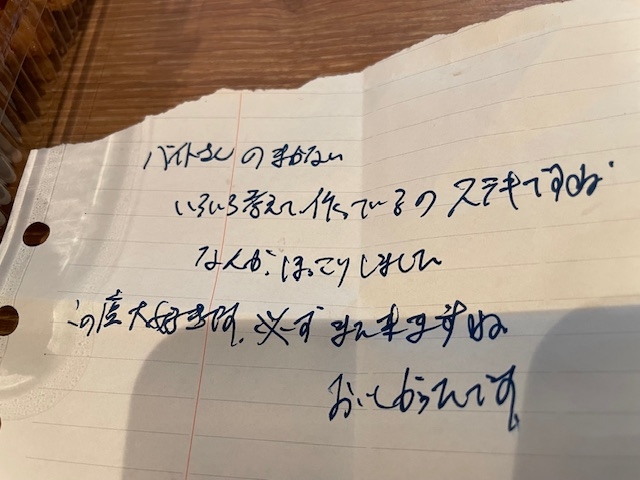 バイトさんのまかない
いろいろ考えて作っているのステキですね
なんか、ほっこりしました
この店大好きです。必ずまた来ますね
おいしかったです。